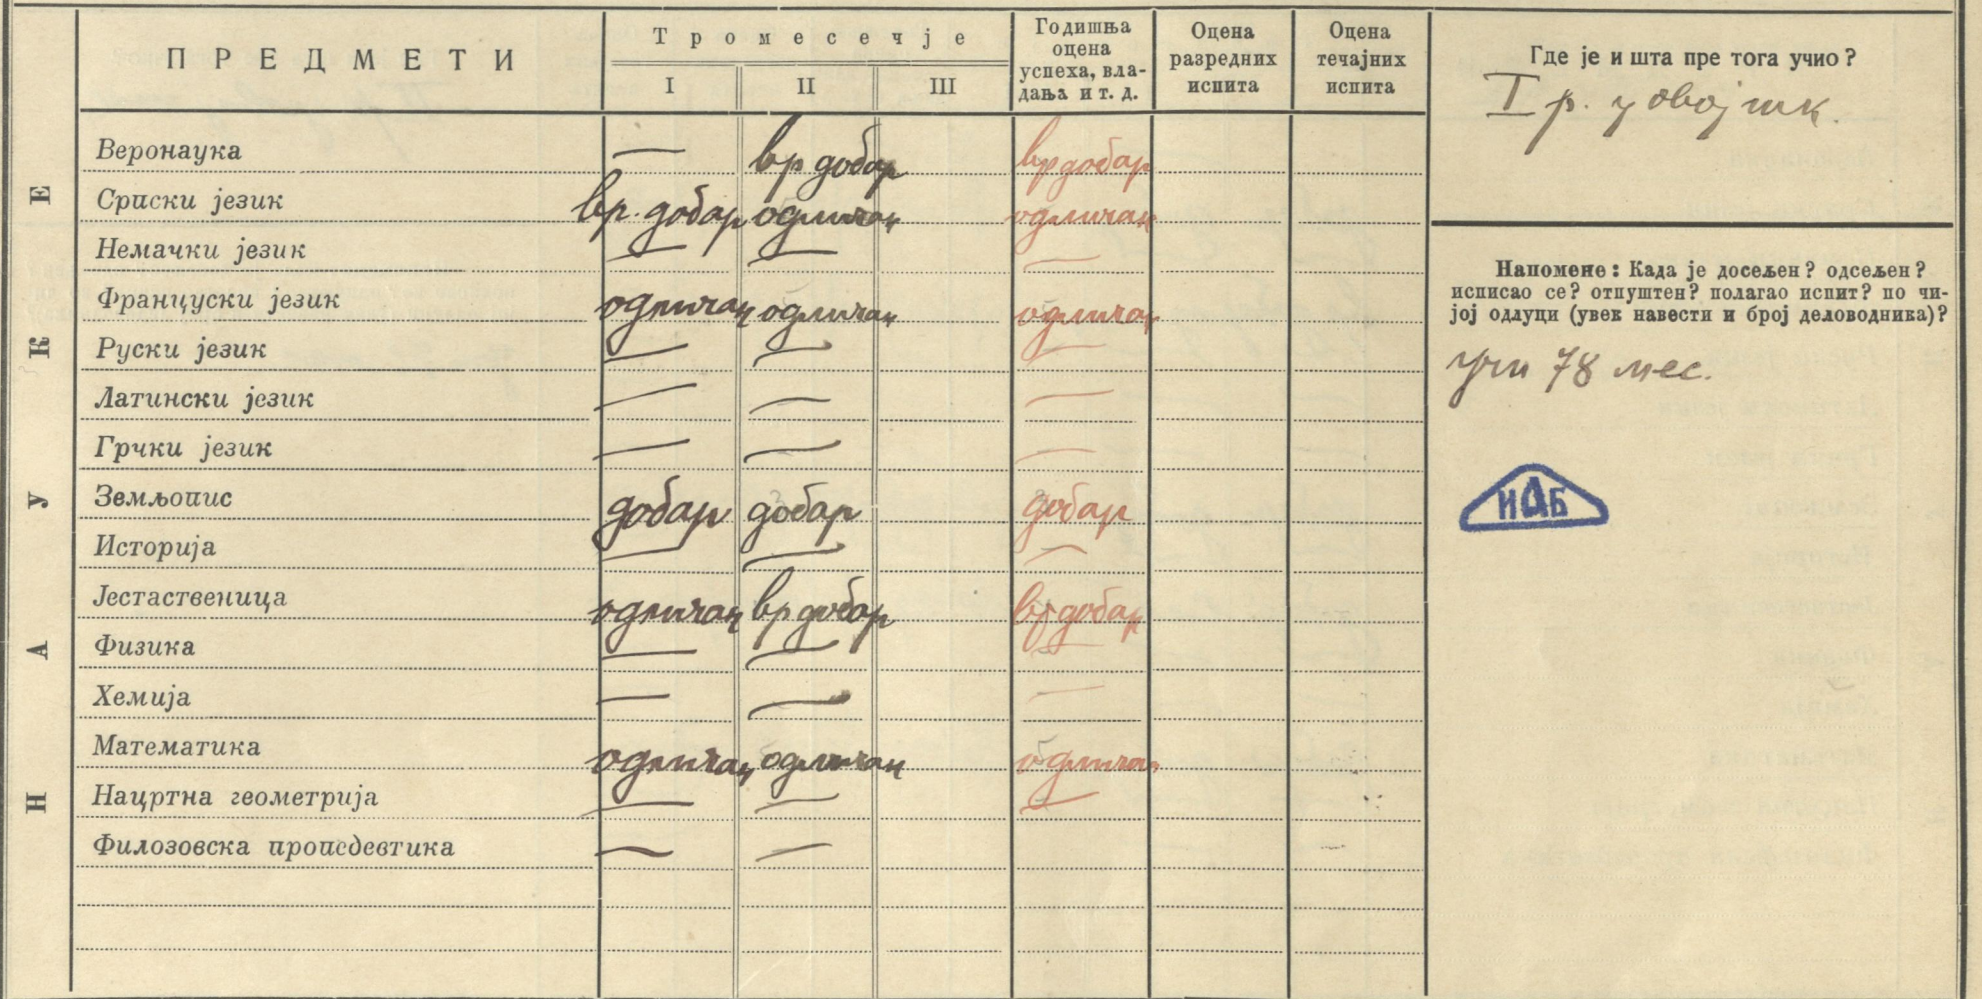 НАУКЕ
ПРЕДМЕТИ
Тромесечје
I II III
Годишња
оцена
успеха, вла-
дања и т. д.
Оцена
разредних
испита
Оцена
течајних
испита
Где је и шта пре тога учио?
I р. у овој
Веронаука — вр добар вр добар
Српски језик вр. добар одличан одличан
Немачки језик — — —
Француски језик одличан одличан одличан
Руски језик — — —
Латински језик — — —
Грчки језик — — —
Земљопис добар добар добар
Историја — — —
Јестаственица одличан вр добар вр добар
Физика — — —
Хемија — — —
Математика одличан одличан одличан
Нацртна геометрија — — —
Филозовска пропедевтика — —
Напомене: Када је досељен? одсељен?
исписао се? отпуштен? полагао испит? по чи-
јој одлуци (увек навести и број деловодника)?
учи 78 мес.
ИАБ